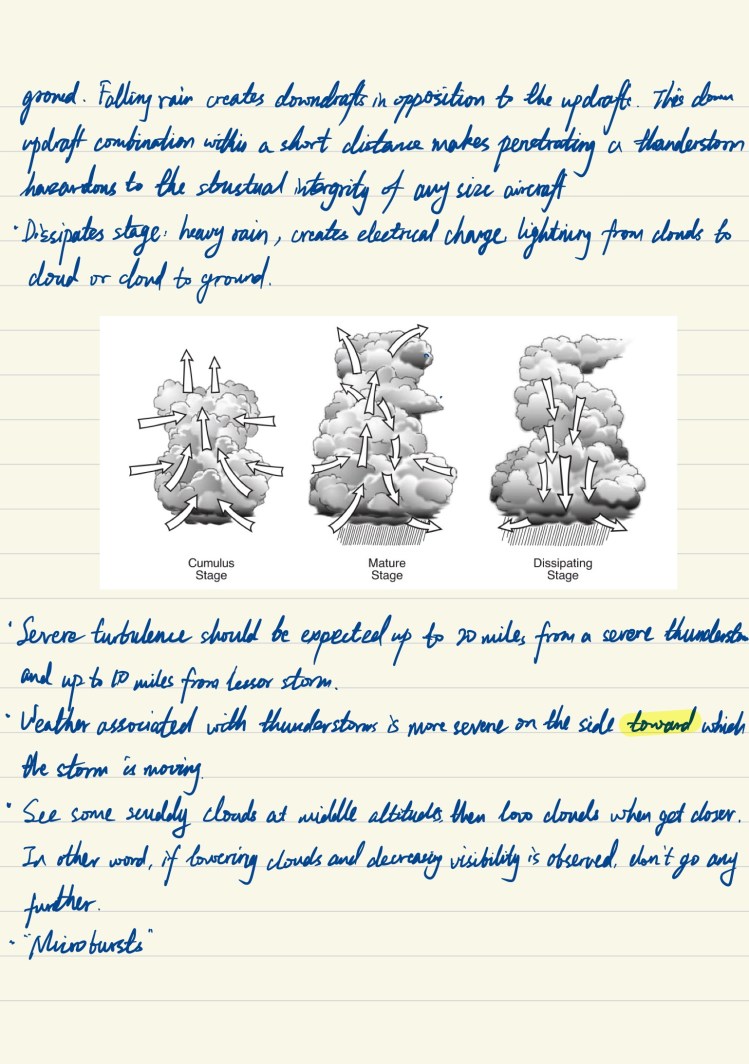 ground. Falling rain creates downdrafts in opposition to the updrafts. This down
updraft combination within a short distance makes penetrating a thunderstorm
hazardous to the stustual intergrity of any size aircraft
· Dissipates stage: heavy rain, creates electrical charge, lightning from clouds to
cloud or cloud to ground.
Cumulus Stage
Mature Stage
Dissipating Stage
· Severe turbulence should be expected up to 20 miles from a severe thunderstom
and up to 10 miles from lessor storm.
· Weather associated with thunderstorms is more severe on the side toward which
the storm is moving.
· See some scuddy clouds at middle altitudes, then low clouds when get closer.
In other word, if lowering clouds and decreasing visibility is observed, don't go any
further.
· "Microbursts"